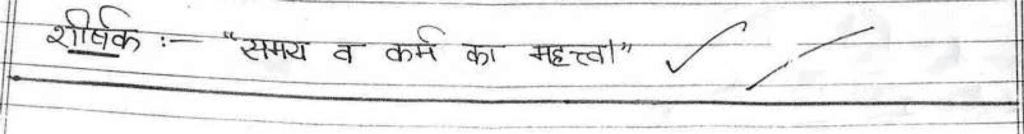 शीर्षक :— "समय व कर्म का महत्त्व।"